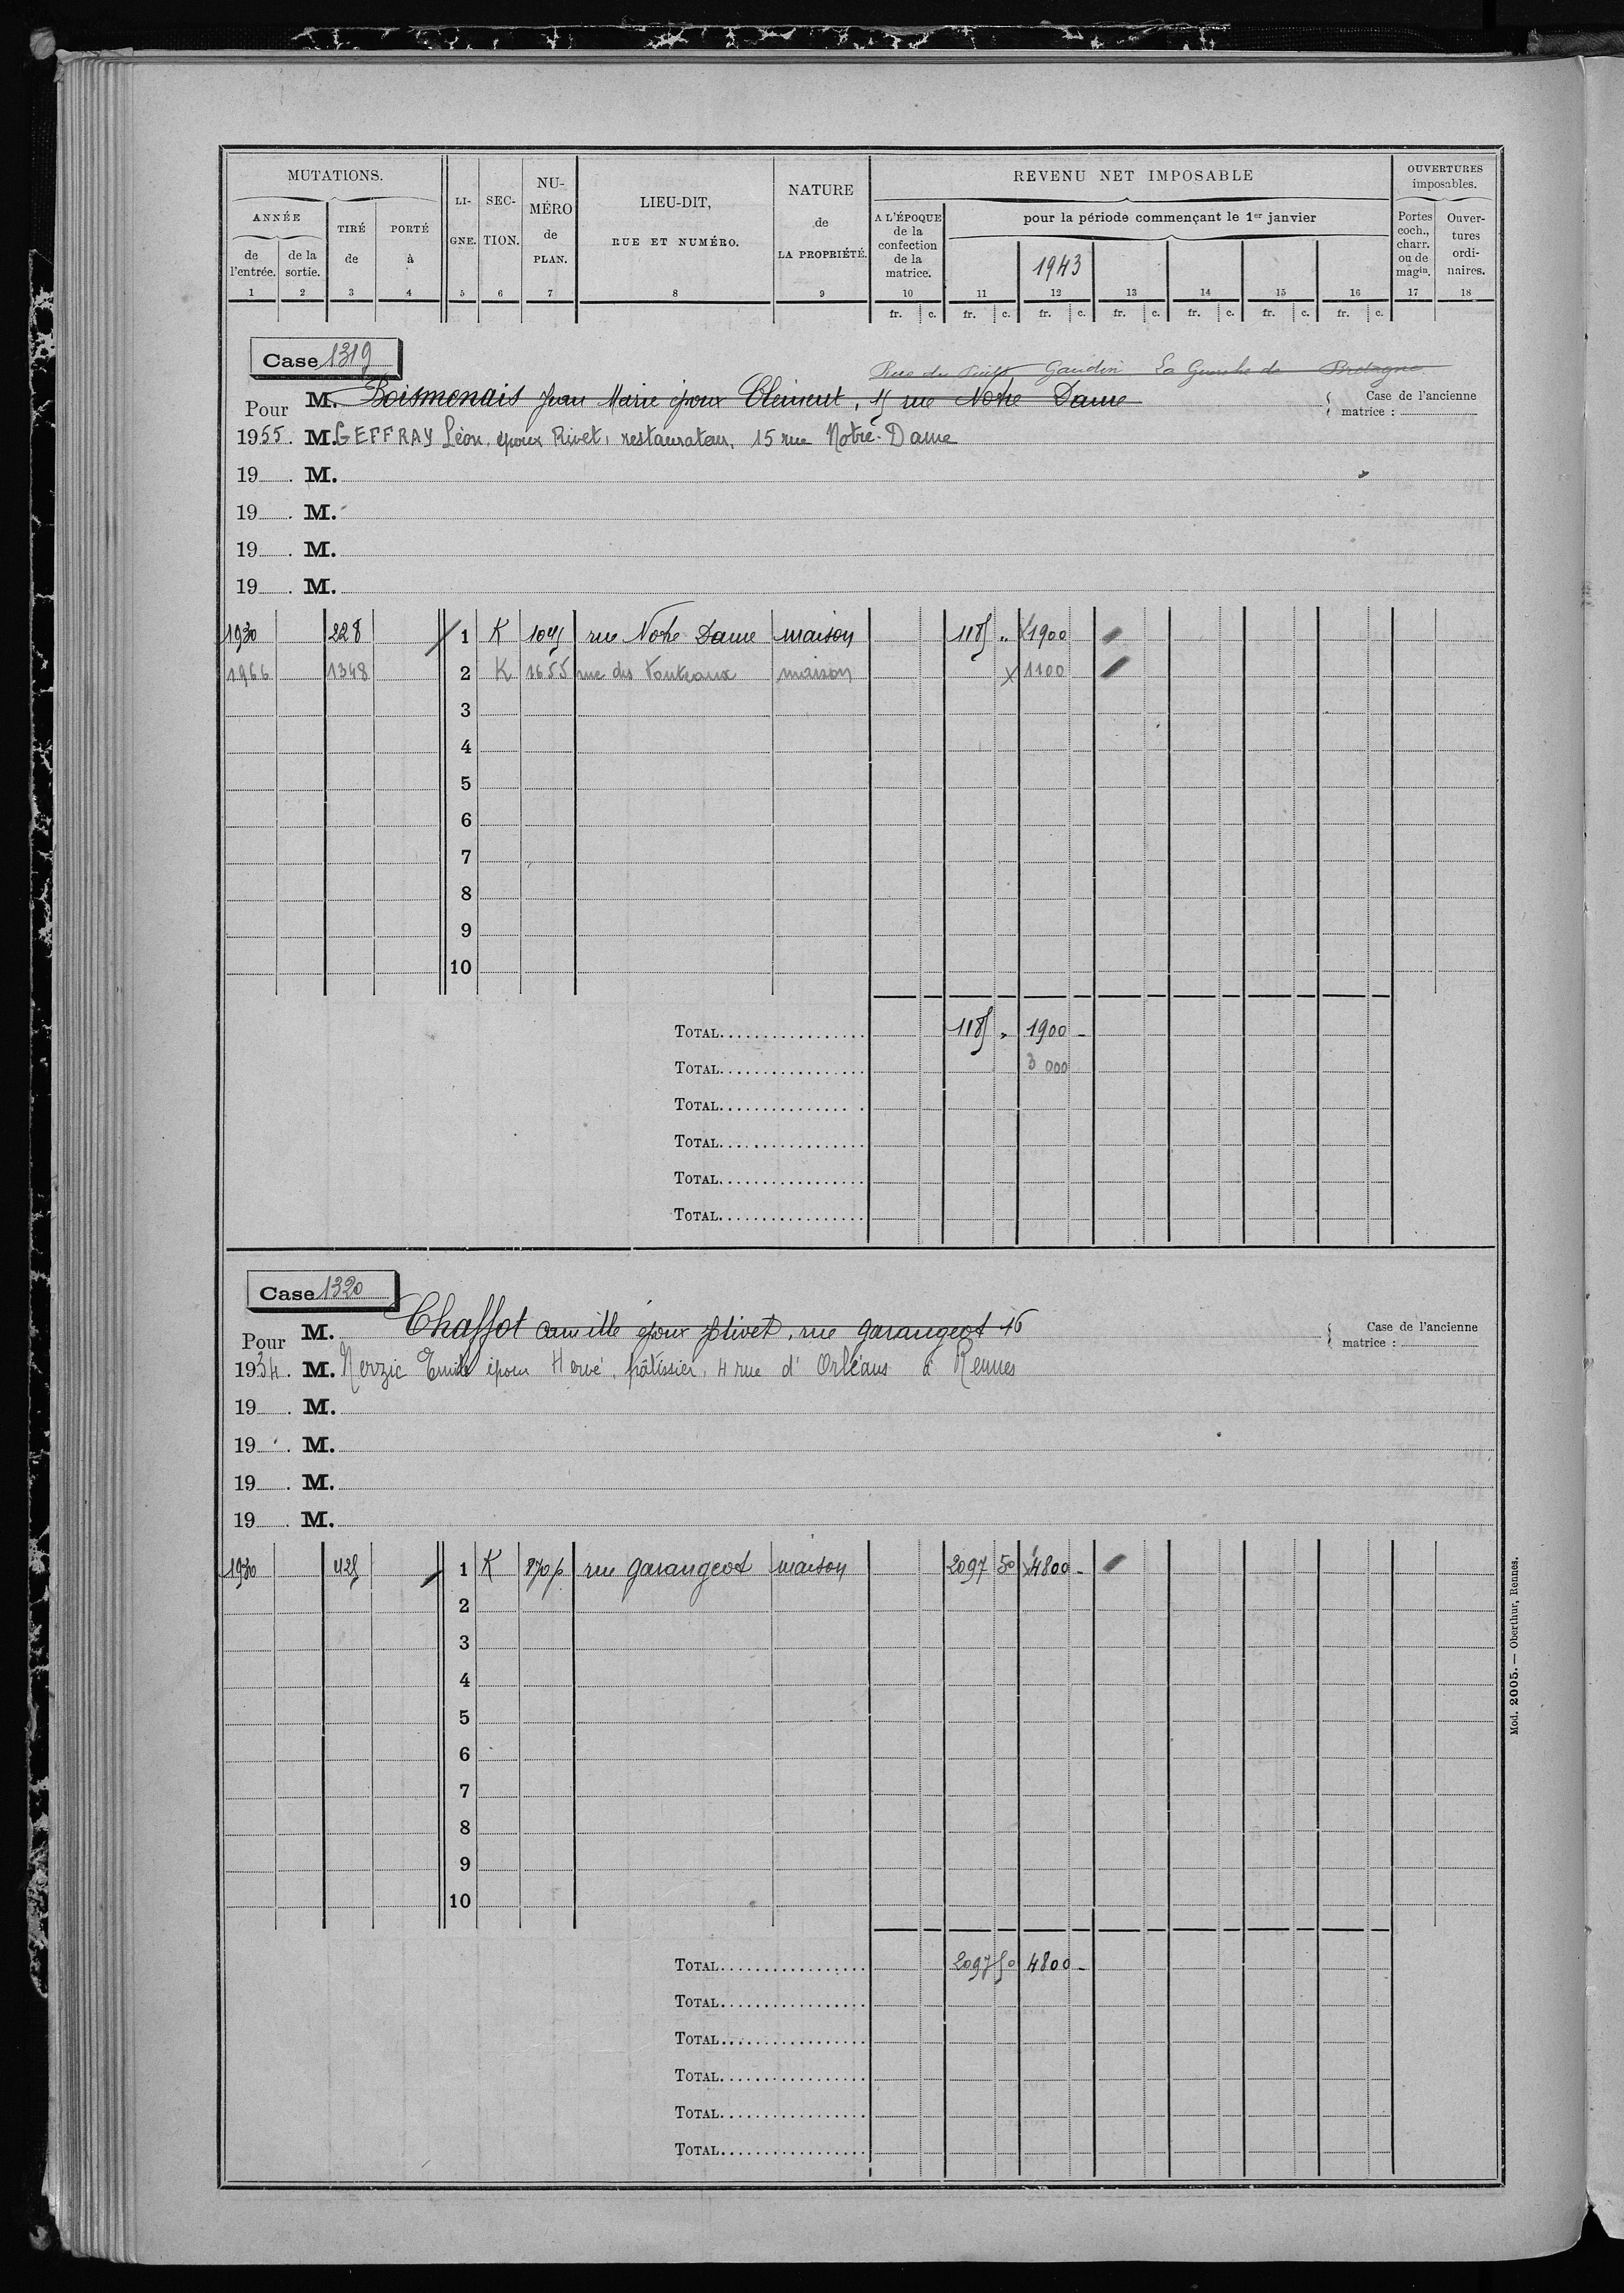 MUTATIONS.
ANNÉE
de l'entrée.
de la sortie.
TIRÉ de
PORTÉ à
LI-GNE.
SEC-TION.
NU-MÉRO de PLAN.
LIEU-DIT, RUE ET NUMÉRO.
NATURE de LA PROPRIÉTÉ.
REVENU NET IMPOSABLE
A L'ÉPOQUE de la confection de la matrice.
pour la période commençant le 1er janvier
1943
OUVERTURES imposables.
Portes coch., charr. ou de magin.
Ouver-tures ordi-naires.
1 2 3 4 5 6 7 8 9 10 11 12 13 14 15 16 17 18
fr. c. fr. c. fr. c. fr. c. fr. c. fr. c. fr. c.
Case 1319
Rue du Puits Gaudin La Guerche de Bretagne
Pour M. Boismenais Jean Marie époux Clément, 15 rue Notre Dame
Case de l'ancienne matrice :
1955. M. GEFFRAY Léon, époux Rivet, restaurateur, 15 rue Notre-Dame
19 . M.
19 . M.
19 . M.
19 . M.
1930 228 1 K 1045 rue Notre Dame maison 1185 " x1900
1966 1348 2 K 1655 rue des maison x 1100
3
4
5
6
7
8
9
10
TOTAL 1185 " 1900 -
TOTAL 3 000
TOTAL
TOTAL
TOTAL
TOTAL
Case 1320
Pour M. Chaffot Camille époux Olivet, rue Garangeot 16
Case de l'ancienne matrice :
1934. M. Nerzic Emile époux Hervé, pâtissier, 4 rue d'Orléans à Rennes
19 . M.
19 . M.
19 . M.
19 . M.
1930 425 1 K 870p rue Garangeot maison 2097 50 x4800 -
2
3
4
5
6
7
8
9
10
TOTAL 2097 50 4800 -
TOTAL
TOTAL
TOTAL
TOTAL
TOTAL
Mod. 2005. — Oberthur, Rennes.